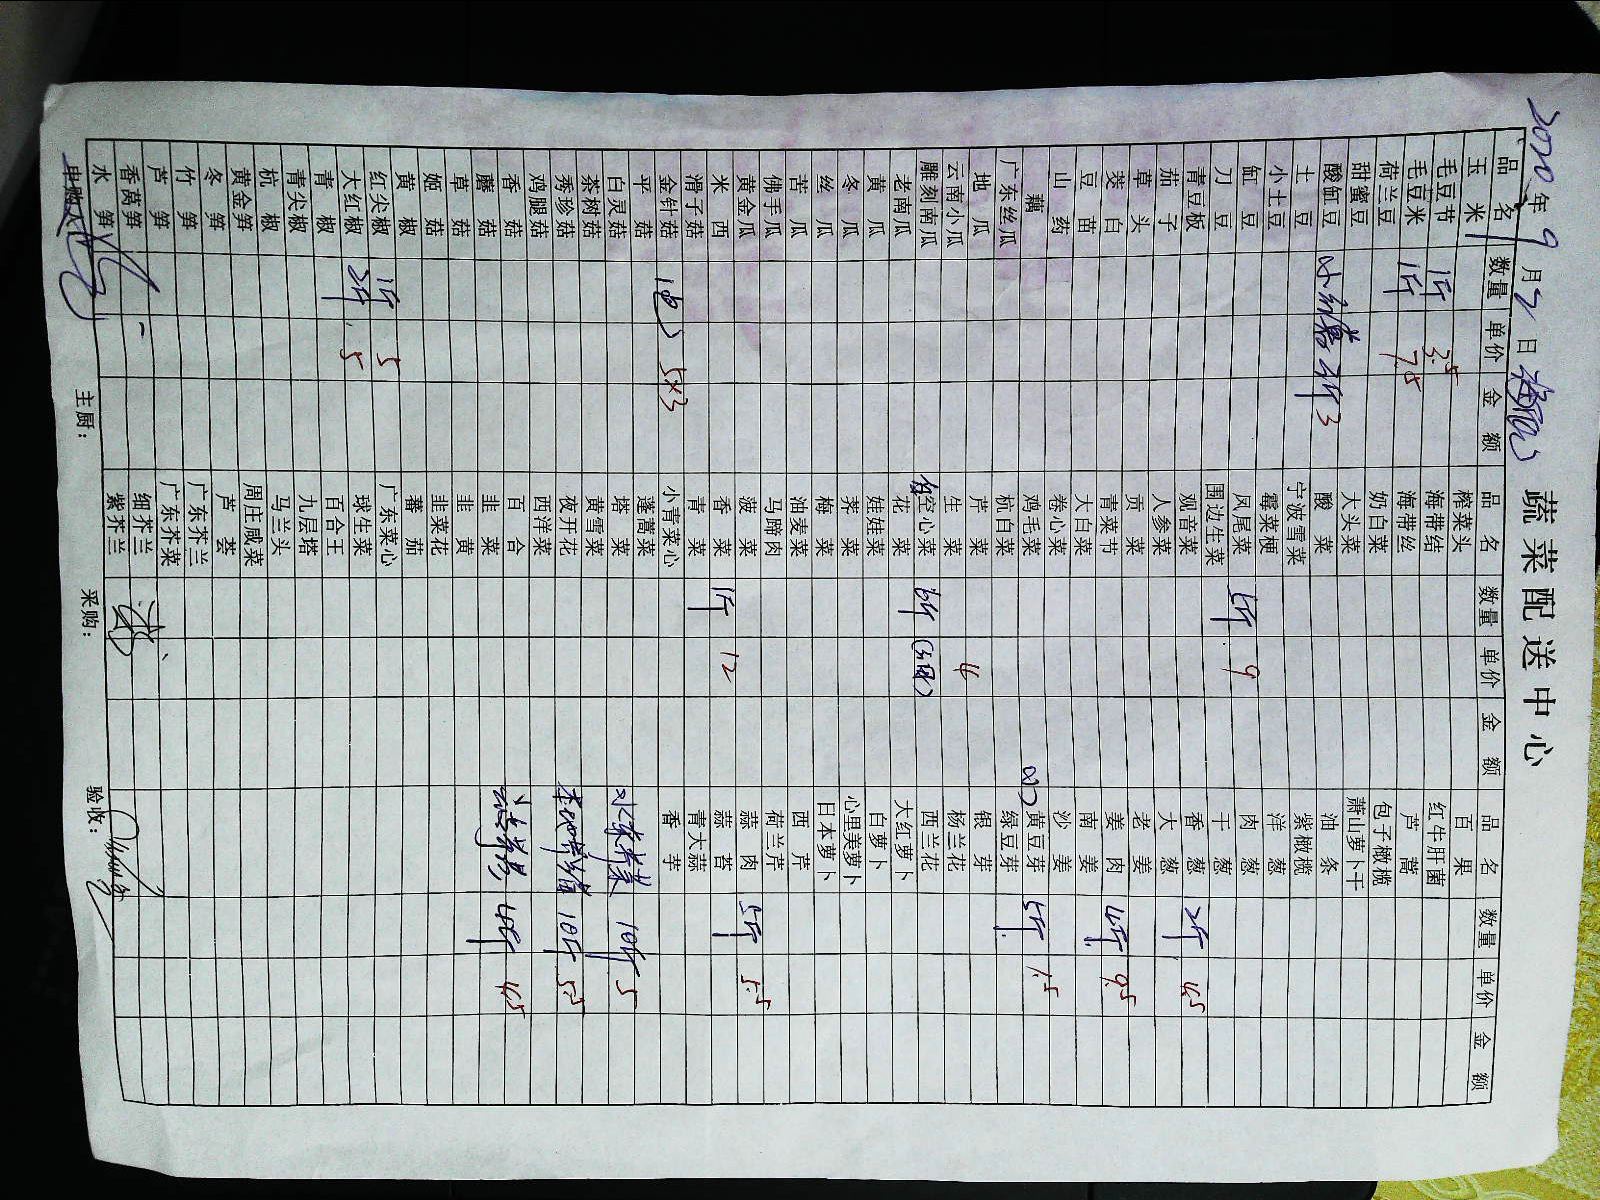 蔬菜配送中心
2020年9月2日
品名 数量 单价 金额 品名 数量 单价 金额 品名 数量 单价 金额
玉米 榨菜头 百果
毛豆节 1斤 3.5 海带结 红牛肝菌
毛豆米 1斤 7.5 海带丝 芦蒿
荷兰豆 奶白菜 包子橄榄
甜蜜豆 大头菜 萧山萝卜干
酸缸豆 小红薯 2斤 3 酸菜 油条
土豆 宁波雪菜 紫橄榄
小土豆 霉菜梗 洋葱
缸豆 凤尾菜 5斤 9 肉葱
刀豆 围边生菜 干葱
青豆板 观音菜 香葱 2斤 4.5
茄子 人参菜 大葱
草头 贡菜 老姜
茭白 青菜节 姜肉 4斤 9.5
豆苗 大白菜 南姜
山药 卷心菜 沙姜
藕 鸡毛菜 黄豆芽 5斤 1.5
广东丝瓜 杭白菜 绿豆芽
地瓜 芹菜 4 银芽
云南小瓜 生菜 杨兰花
雕刻南瓜 空心菜 6斤 西兰花
老南瓜 花菜 大红萝卜
黄瓜 娃娃菜 白萝卜
冬瓜 荠菜 心里美萝卜
丝瓜 梅菜 日本萝卜
苦瓜 油麦菜 西芹
佛手瓜 马蹄肉 荷兰芹
黄金瓜 菠菜 蒜肉 5斤 5.5
米西 香菜 1斤 12 蒜苔
滑子菇 青菜 青大蒜
金针菇 1包 5×3 小青菜心 香芋
平菇 蓬蒿菜
白灵菇 塔菜 水芹菜 10斤 5
茶树菇 黄雪菜
秀珍菇 夜开花 10斤 5.5
鸡腿菇 西洋菜
香菇 百合 4斤 4.5
蘑菇 韭菜
草菇 韭黄
姬菇 韭菜花
黄椒 蕃茄
红尖椒 1斤 5 广东菜心
大红椒 2斤 5 球生菜
青椒 百合王
青尖椒 九层塔
杭椒 马兰头
黄金笋 周庄咸菜
冬笋 芦荟
竹笋 广东芥兰
芦笋 广东芥菜
香莴笋 细芥兰
水笋 紫芥兰
申购人: 主厨: 采购: 验收: